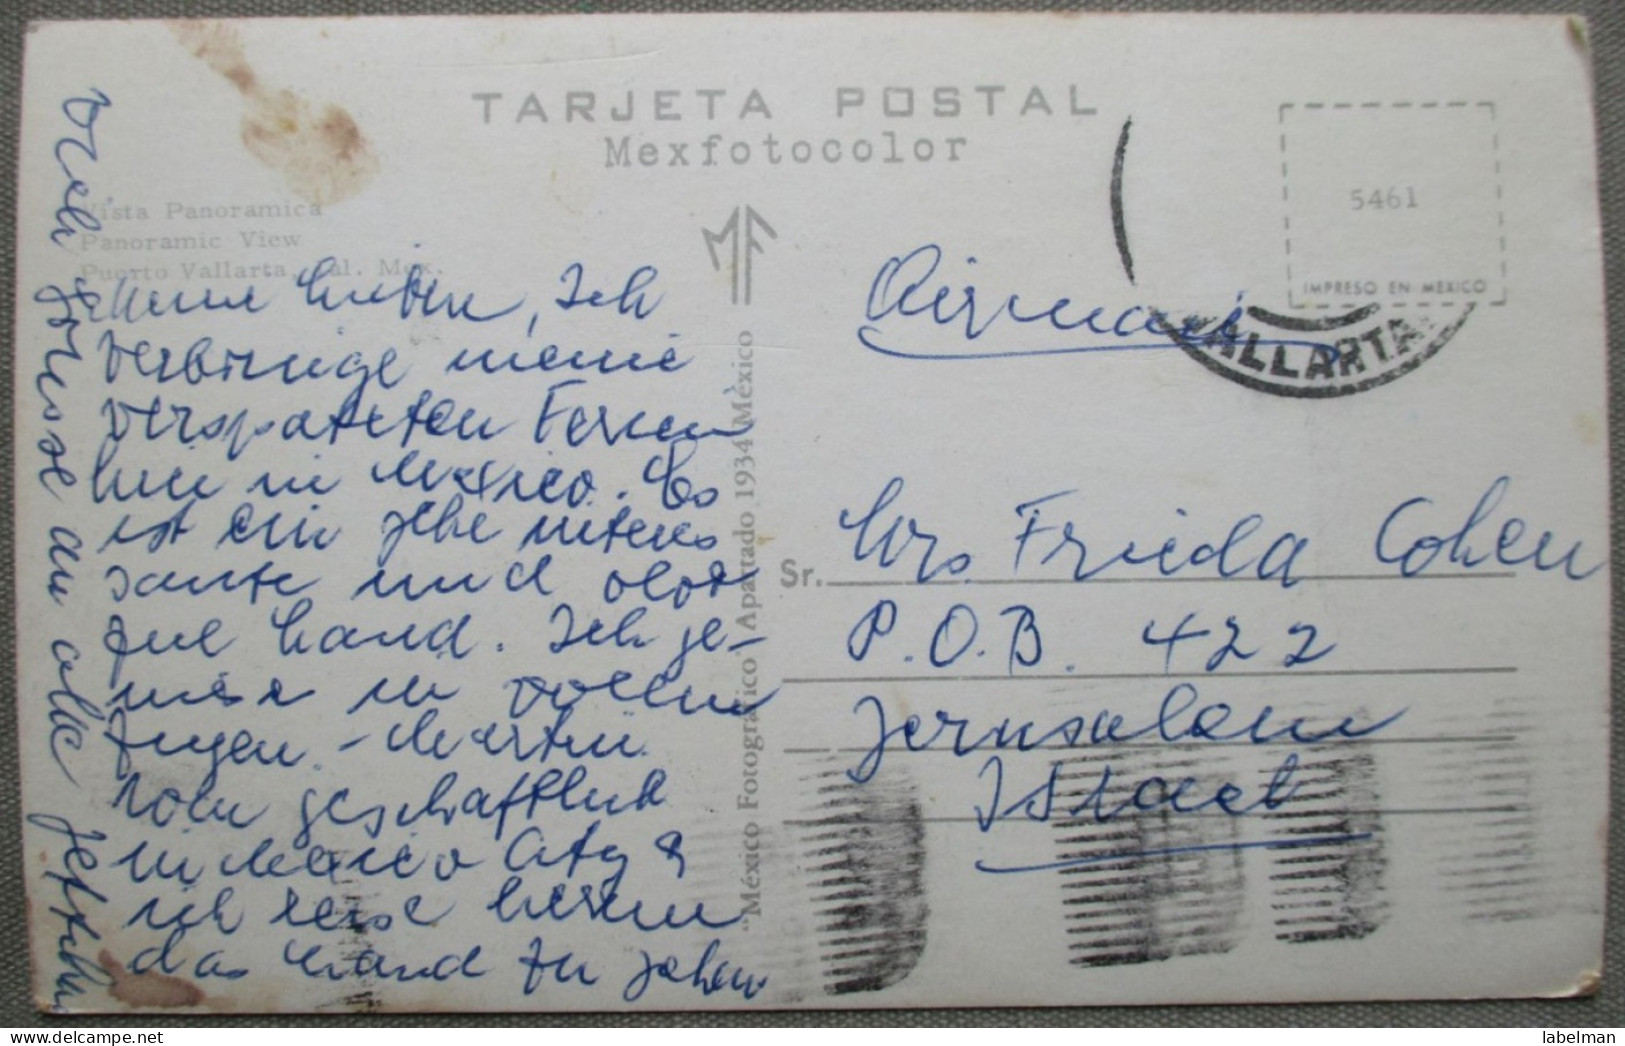 TARJETA POSTAL
Mexfotocolor
Vista Panoramica
Panoramic View
Puerto Vallarta, Jal. Mex.
5461
IMPRESO EN MEXICO
VALLARTA
Airmail
Meine Lieben, Ich
verbringe meine
verspäteten Ferien
hier in Mexico. Es
ist ein sehr interes
sante und
Land. Ich ge-
niese in vollen
Zügen. - Martin
geschäftlich
in Mexico City &
ich reise herum
das Land zu sehen
Viele Grüsse an alle
"México Fotográfico" Apartado 1934 México
Sr. Mrs. Frieda Cohen
P.O.B. 422
Jerusalem
Israel
labelman